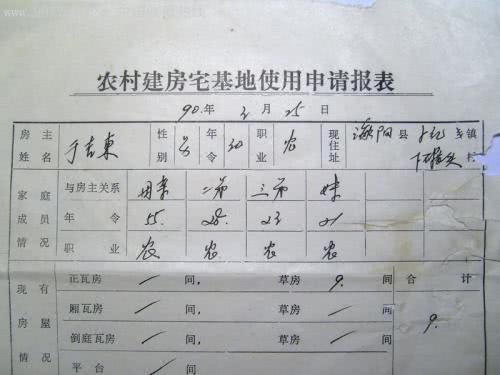 农村建房宅基地使用申请报表
90.年 3月 25日
房主姓名 于吉東 性别 男 年令 30 职业 农 现住址 县 乡镇 村
家庭成员情况 与房主关系 母亲 二弟 三弟 妹
年令 55. 28. 23 21
职业 农 农 农 农
现有房屋情况 正瓦房 / 间, 草房 9. 间 合计
厢瓦房 / 间, 草房 / 间 9.
倒庭瓦房 / 间, 草房 / 间
平台 / 间